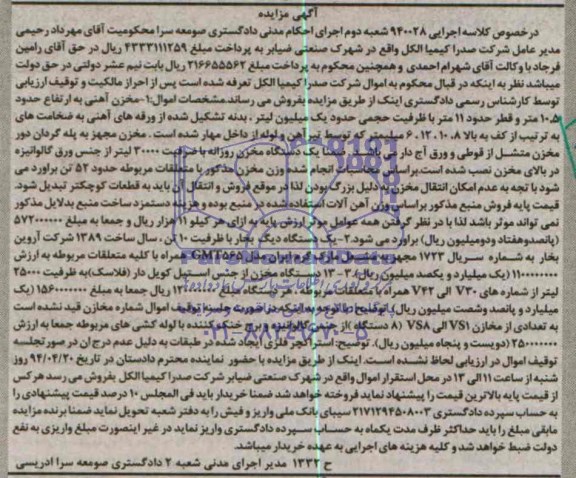 آگهی مزایده
درخصوص کلاسه اجرایی ۹۴۰۰۲۸ شعبه دوم اجرای احکام مدنی دادگستری صومعه سرا محکومیت آقای مهرداد رحیمی
مدیر عامل شرکت صدرا کیمیا الکل واقع در شهرک صنعتی ضیابر به پرداخت مبلغ ۴۳۳۳۱۱۱۲۵۹ ریال در حق آقای رامین
فرجاد با وکالت آقای شهرام احمدی و همچنین محکوم به پرداخت مبلغ ۲۱۶۶۵۵۵۶۲ ریال بابت نیم عشر دولتی در حق دولت
میباشد نظر به اینکه در قبال محکوم به اموال شرکت صدرا کیمیا الکل تعرفه شده است پس از احراز مالکیت و توقیف ارزیابی
توسط کارشناس رسمی دادگستری اینک از طریق مزایده بفروش می رساند. مشخصات اموال: ۱-مخزن آهنی به ارتفاع حدود
۱۰.۵ متر و قطر حدود ۱۱ متر با ظرفیت حجمی حدود یک میلیون لیتر . بدنه تشکیل شده از ورقه های آهنی به ضخامت های
به ترتیب از کف به بالا ۸ .۱۰ .۱۲ .۶ میلیمتر که توسط تیر آهن و لوله از داخل مهار شده است . مخزن مجهز به پله گردان دور
مخزن متشکل از قوطی و ورق آج دار می باشد. ضمنا یک دستگاه مخزن روزانه با ظرفیت ۳۰۰۰۰ لیتر از جنس ورق گالوانیزه
در بالای مخزن نصب شده است. براساس محاسبات انجام شده وزن مخزن مذکور با متعلقات مربوطه حدود ۵۲ تن برآورد می
شود با توجه به عدم امکان انتقال مخزن به دلیل بزرگ بودن لذا در موقع فروش و انتقال آن باید به قطعات کوچکتر تبدیل شود.
قیمت پایه فروش منبع مذکور براساس وزن آهن آلات استفاده شده در منبع بوده و هزینه دستمزد ساخت منبع بدلایل مذکور
نمی تواند موثر باشد لذا با در نظر گرفتن همه عوامل موثر ارزش پایه به ازای هر کیلو ۱۱ هزار ریال و جمعا به مبلغ ۵۷۲۰۰۰۰۰۰
(پانصدوهفتاد ودومیلیون ریال) برآورد می شود. ۲- یک دستگاه دیگ بخار با ظرفیت ۱۰ تن . سال ساخت ۱۳۸۹ شرکت آروین
بخار به شماره سریال ۱۷۲۳ مجهز به GMT۵۶۵ همراه با کلیه متعلقات مربوطه به ارزش
۱۱۰۰۰۰۰۰۰۰ (یک میلیارد و یکصد میلیون ریال) ۳- ۱۳ دستگاه مخزن از جنس استیل کویل دار (فلاسک) به ظرفیت ۲۵۰۰۰
لیتر از شماره های V۳۰ الی V۴۲ همراه با متعلقات مربوطه هر دستگاه به مبلغ ۱۲۰۰۰۰۰۰۰ ریال جمعا به مبلغ ۱۵۶۰۰۰۰۰۰۰ (یک
میلیارد و پانصد وشصت میلیون ریال). توضیح: با توجه به اینکه در صورت جلسه توقیف اموال شماره مخازن قید نشده است
به تعدادی از مخازن VS۱ الی VS۸ (۸ دستگاه) از جنس گالوانیزه و برج خنک کننده با لوله کشی های مربوطه جمعا به ارزش
۲۵۰۰۰۰۰۰۰ (دویست و پنجاه میلیون ریال). توضیح: استراکچر فلزی ایجاد شده در طبقات به دلیل عدم درج ان در صورتجلسه
توقیف اموال در ارزیابی لحاظ نشده است. اینک از طریق مزایده با حضور نماینده محترم دادستان در تاریخ ۹۴/۰۴/۲۰ روز
شنبه از ساعت ۱۱ الی ۱۳ در محل استقرار اموال واقع در شهرک صنعتی ضیابر شرکت صدرا کیمیا الکل بفروش می رسد هر کس
از قیمت پایه بالاترین قیمت را پیشنهاد نماید فروخته خواهد شد ضمنا خریدار باید فی المجلس ۱۰ درصد قیمت پیشنهادی را
به حساب سپرده دادگستری ۲۱۷۱۲۹۴۵۰۸۰۰۳ سیبای بانک ملی واریز و فیش را به دفتر شعبه تحویل نماید ضمنا برنده مزایده
مابقی مبلغ را باید حداکثر ظرف مدت یکماه به حساب سپرده دادگستری واریز نماید در غیر اینصورت مبلغ واریزی به نفع
دولت ضبط خواهد شد و کلیه هزینه های اجرایی به عهده خریدار میباشد.
ح ۱۳۳۲ مدیر اجرای مدنی شعبه ۲ دادگستری صومعه سرا ادریسی